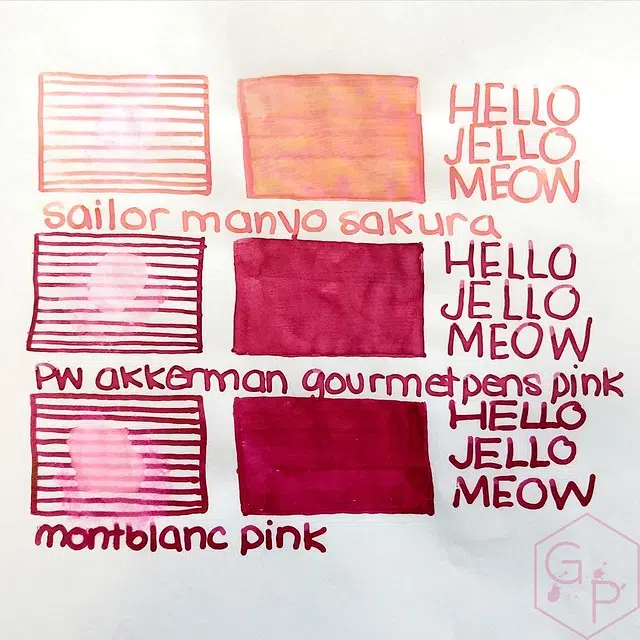 HELLO
JELLO
MEOW
sailor manyo sakura
HELLO
JELLO
MEOW
PW akkerman gourmetpens pink
HELLO
JELLO
MEOW
montblanc pink
GP